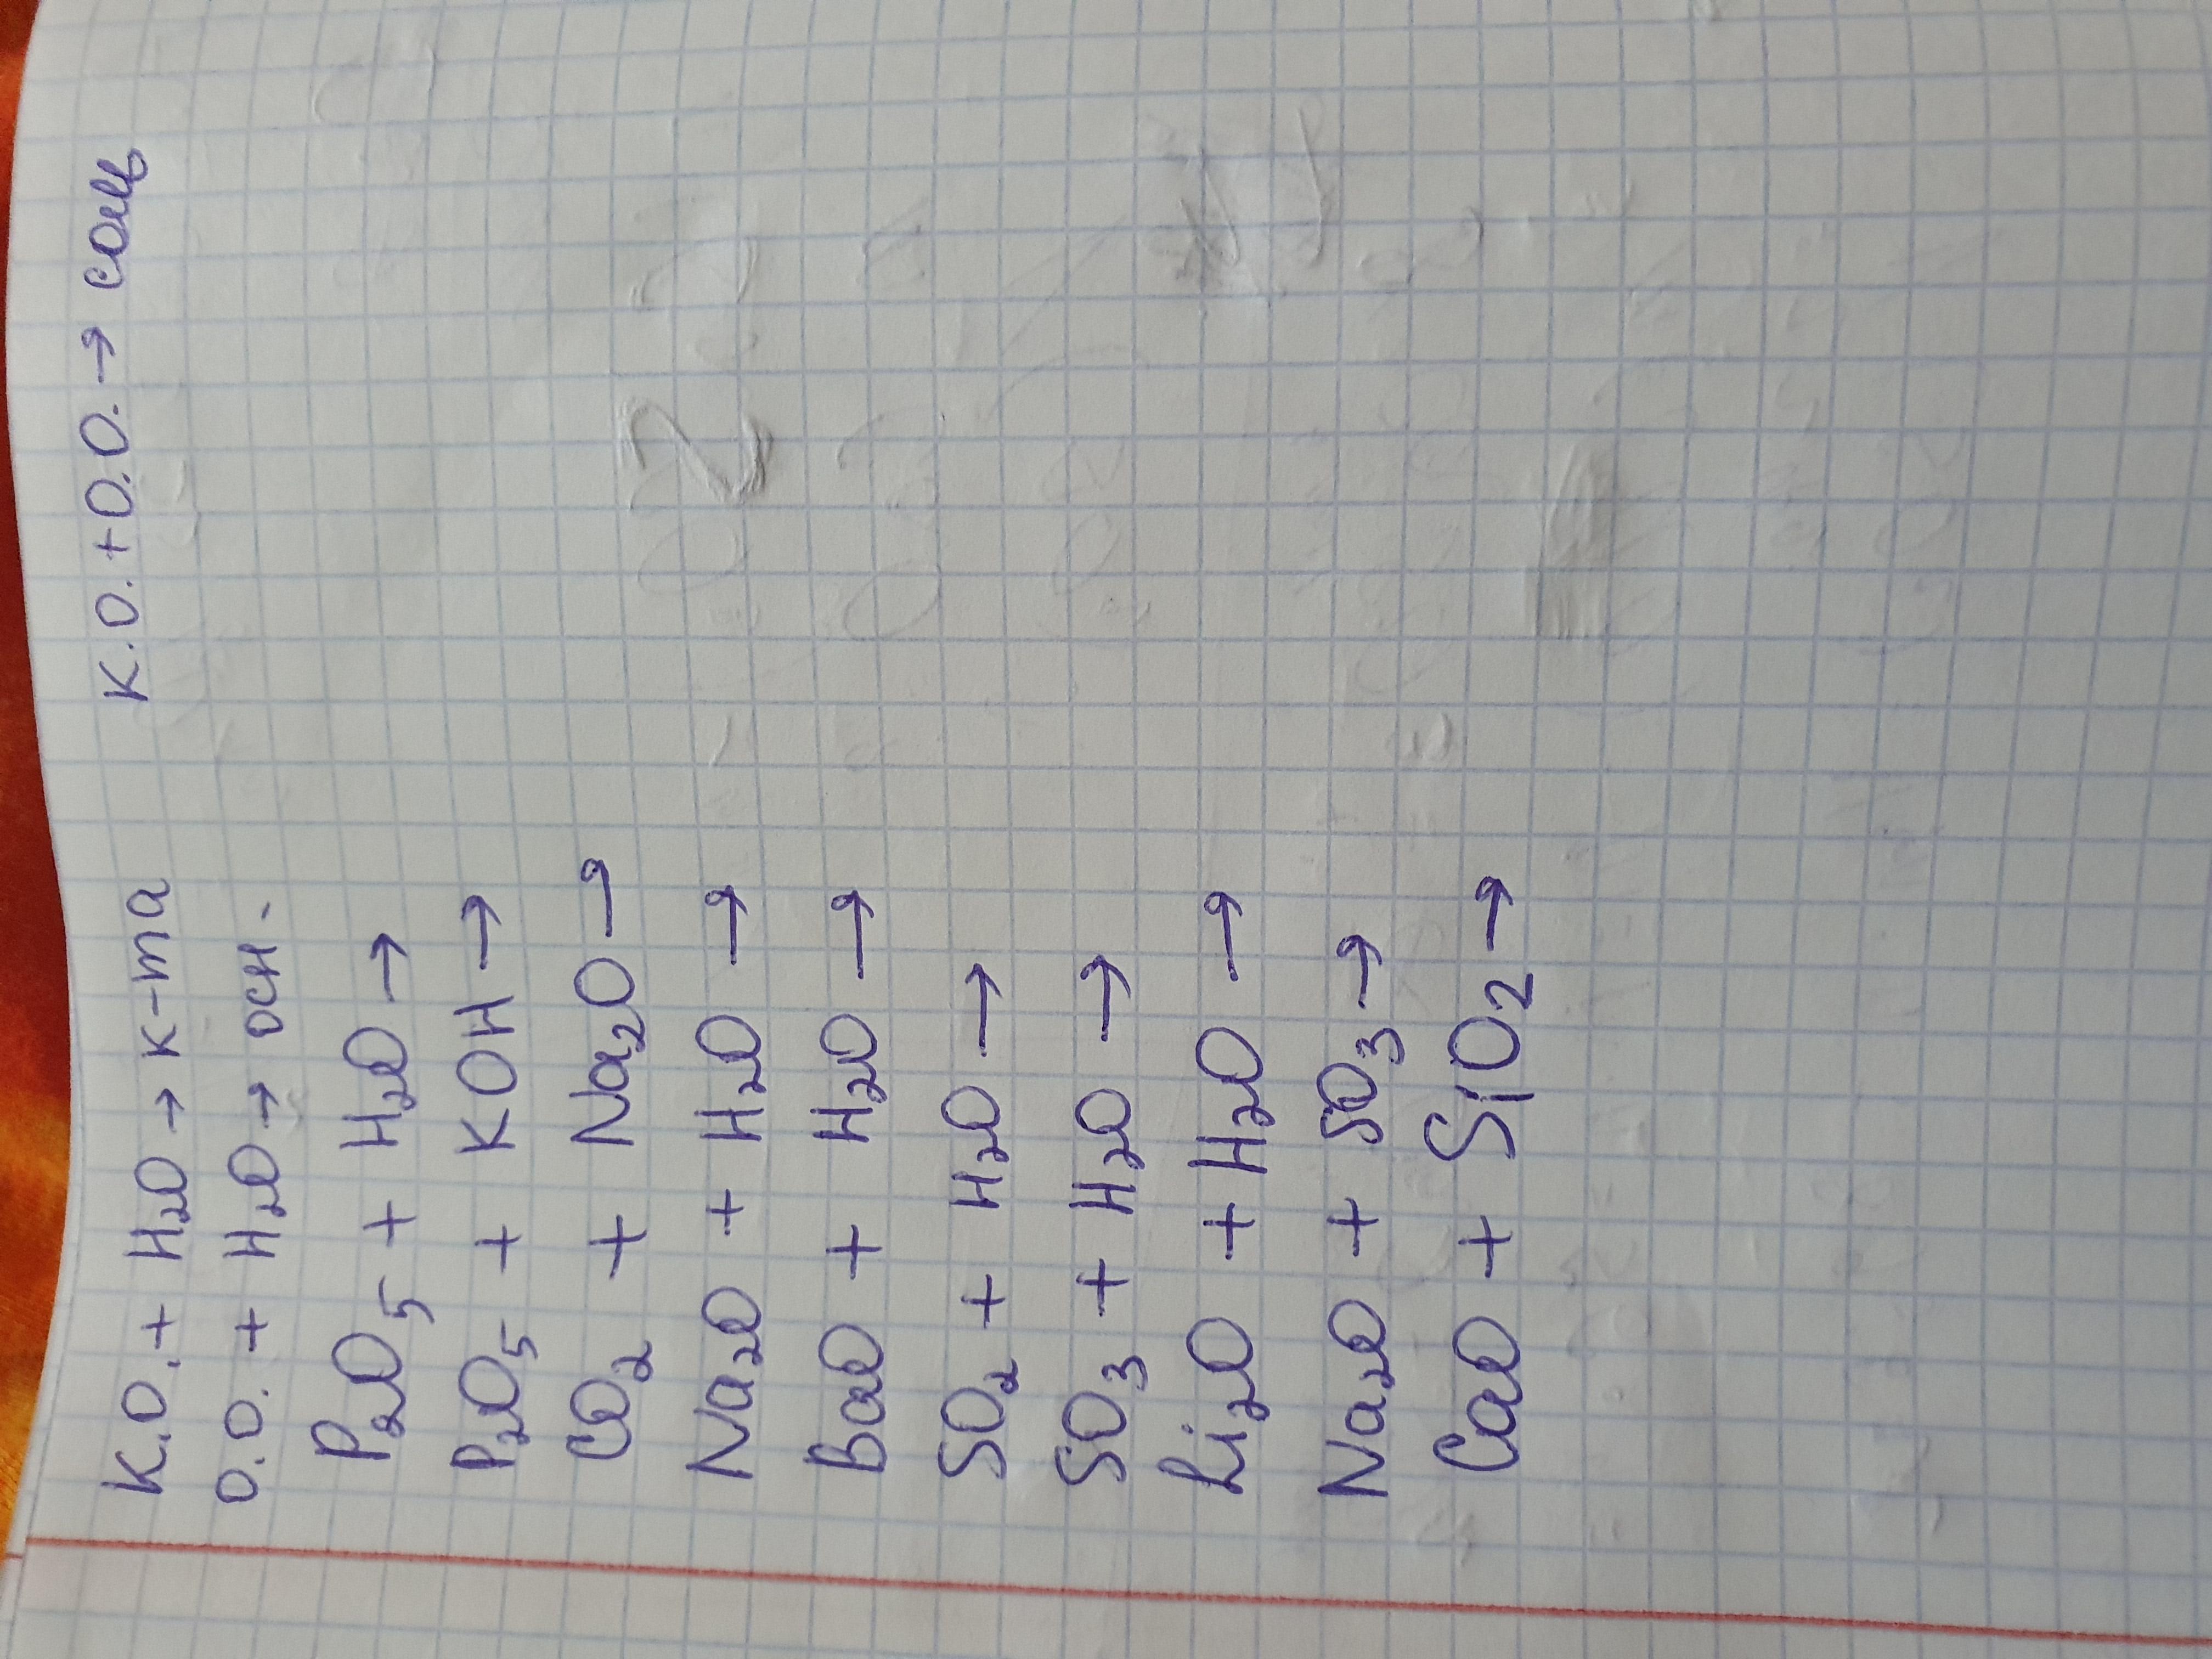 К.О. + H₂O → к-та    К.О. + О.О. → соль
О.О. + H₂O → осн.
P₂O₅ + H₂O →
P₂O₅ + KOH →
CO₂ + Na₂O →
Na₂O + H₂O →
BaO + H₂O →
SO₂ + H₂O →
SO₃ + H₂O →
Li₂O + H₂O →
Na₂O + SO₃ →
CaO + SiO₂ →